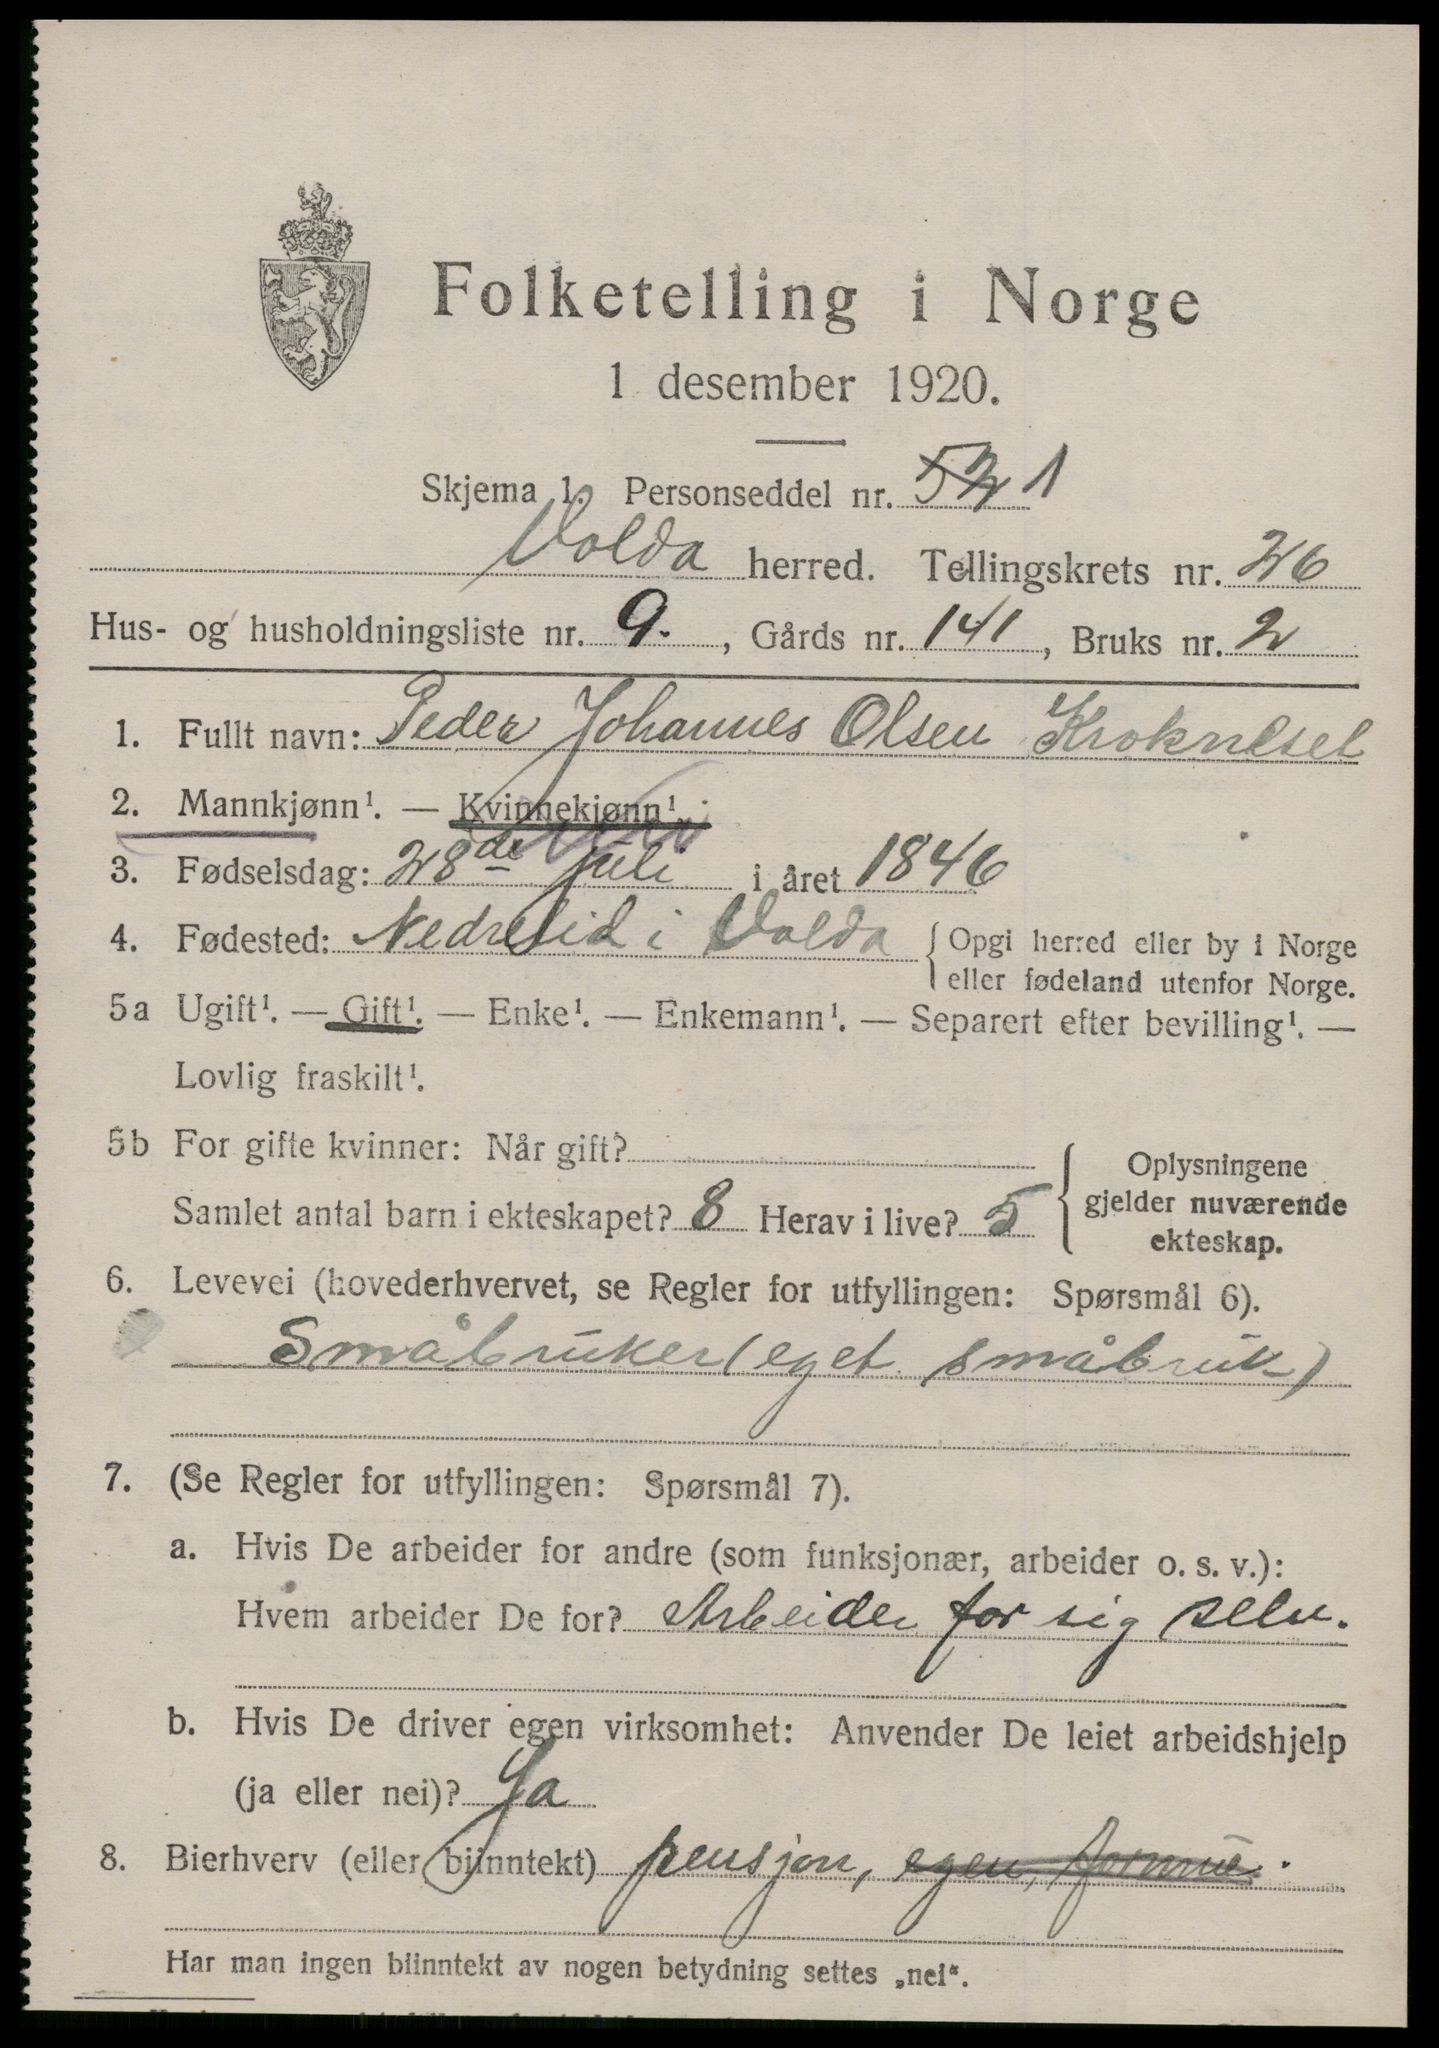 Folketelling i Norge
1 desember 1920.
Skjema 1. Personseddel nr. 52 1
Volda herred. Tellingskrets nr. 26
Hus- og husholdningsliste nr. 9. , Gårds nr. 141 , Bruks nr. 2
1. Fullt navn: Peder Johannes Olsen Krokneset
2. Mannkjønn¹. — Kvinnekjønn¹.
3. Fødselsdag: 28de juli i året 1846
4. Fødested: Nedrelid i Volda { Opgi herred eller by i Norge
eller fødeland utenfor Norge.
5a Ugift¹. — Gift¹. — Enke¹. — Enkemann¹. — Separert efter bevilling¹. —
Lovlig fraskilt¹.
5b For gifte kvinner: Når gift?
Samlet antal barn i ekteskapet? 8 Herav i live? 5
{ Oplysningene
gjelder nuværende
ekteskap.
6. Levevei (hovederhvervet, se Regler for utfyllingen: Spørsmål 6).
Småbruker (eget småbruk)
7. (Se Regler for utfyllingen: Spørsmål 7).
a. Hvis De arbeider for andre (som funksjonær, arbeider o. s. v.):
Hvem arbeider De for? Arbeider for sig selv.
b. Hvis De driver egen virksomhet: Anvender De leiet arbeidshjelp
(ja eller nei)? Ja
8. Bierhverv (eller biinntekt) pensjon, egen, formue.
Har man ingen biinntekt av nogen betydning settes „nei“.